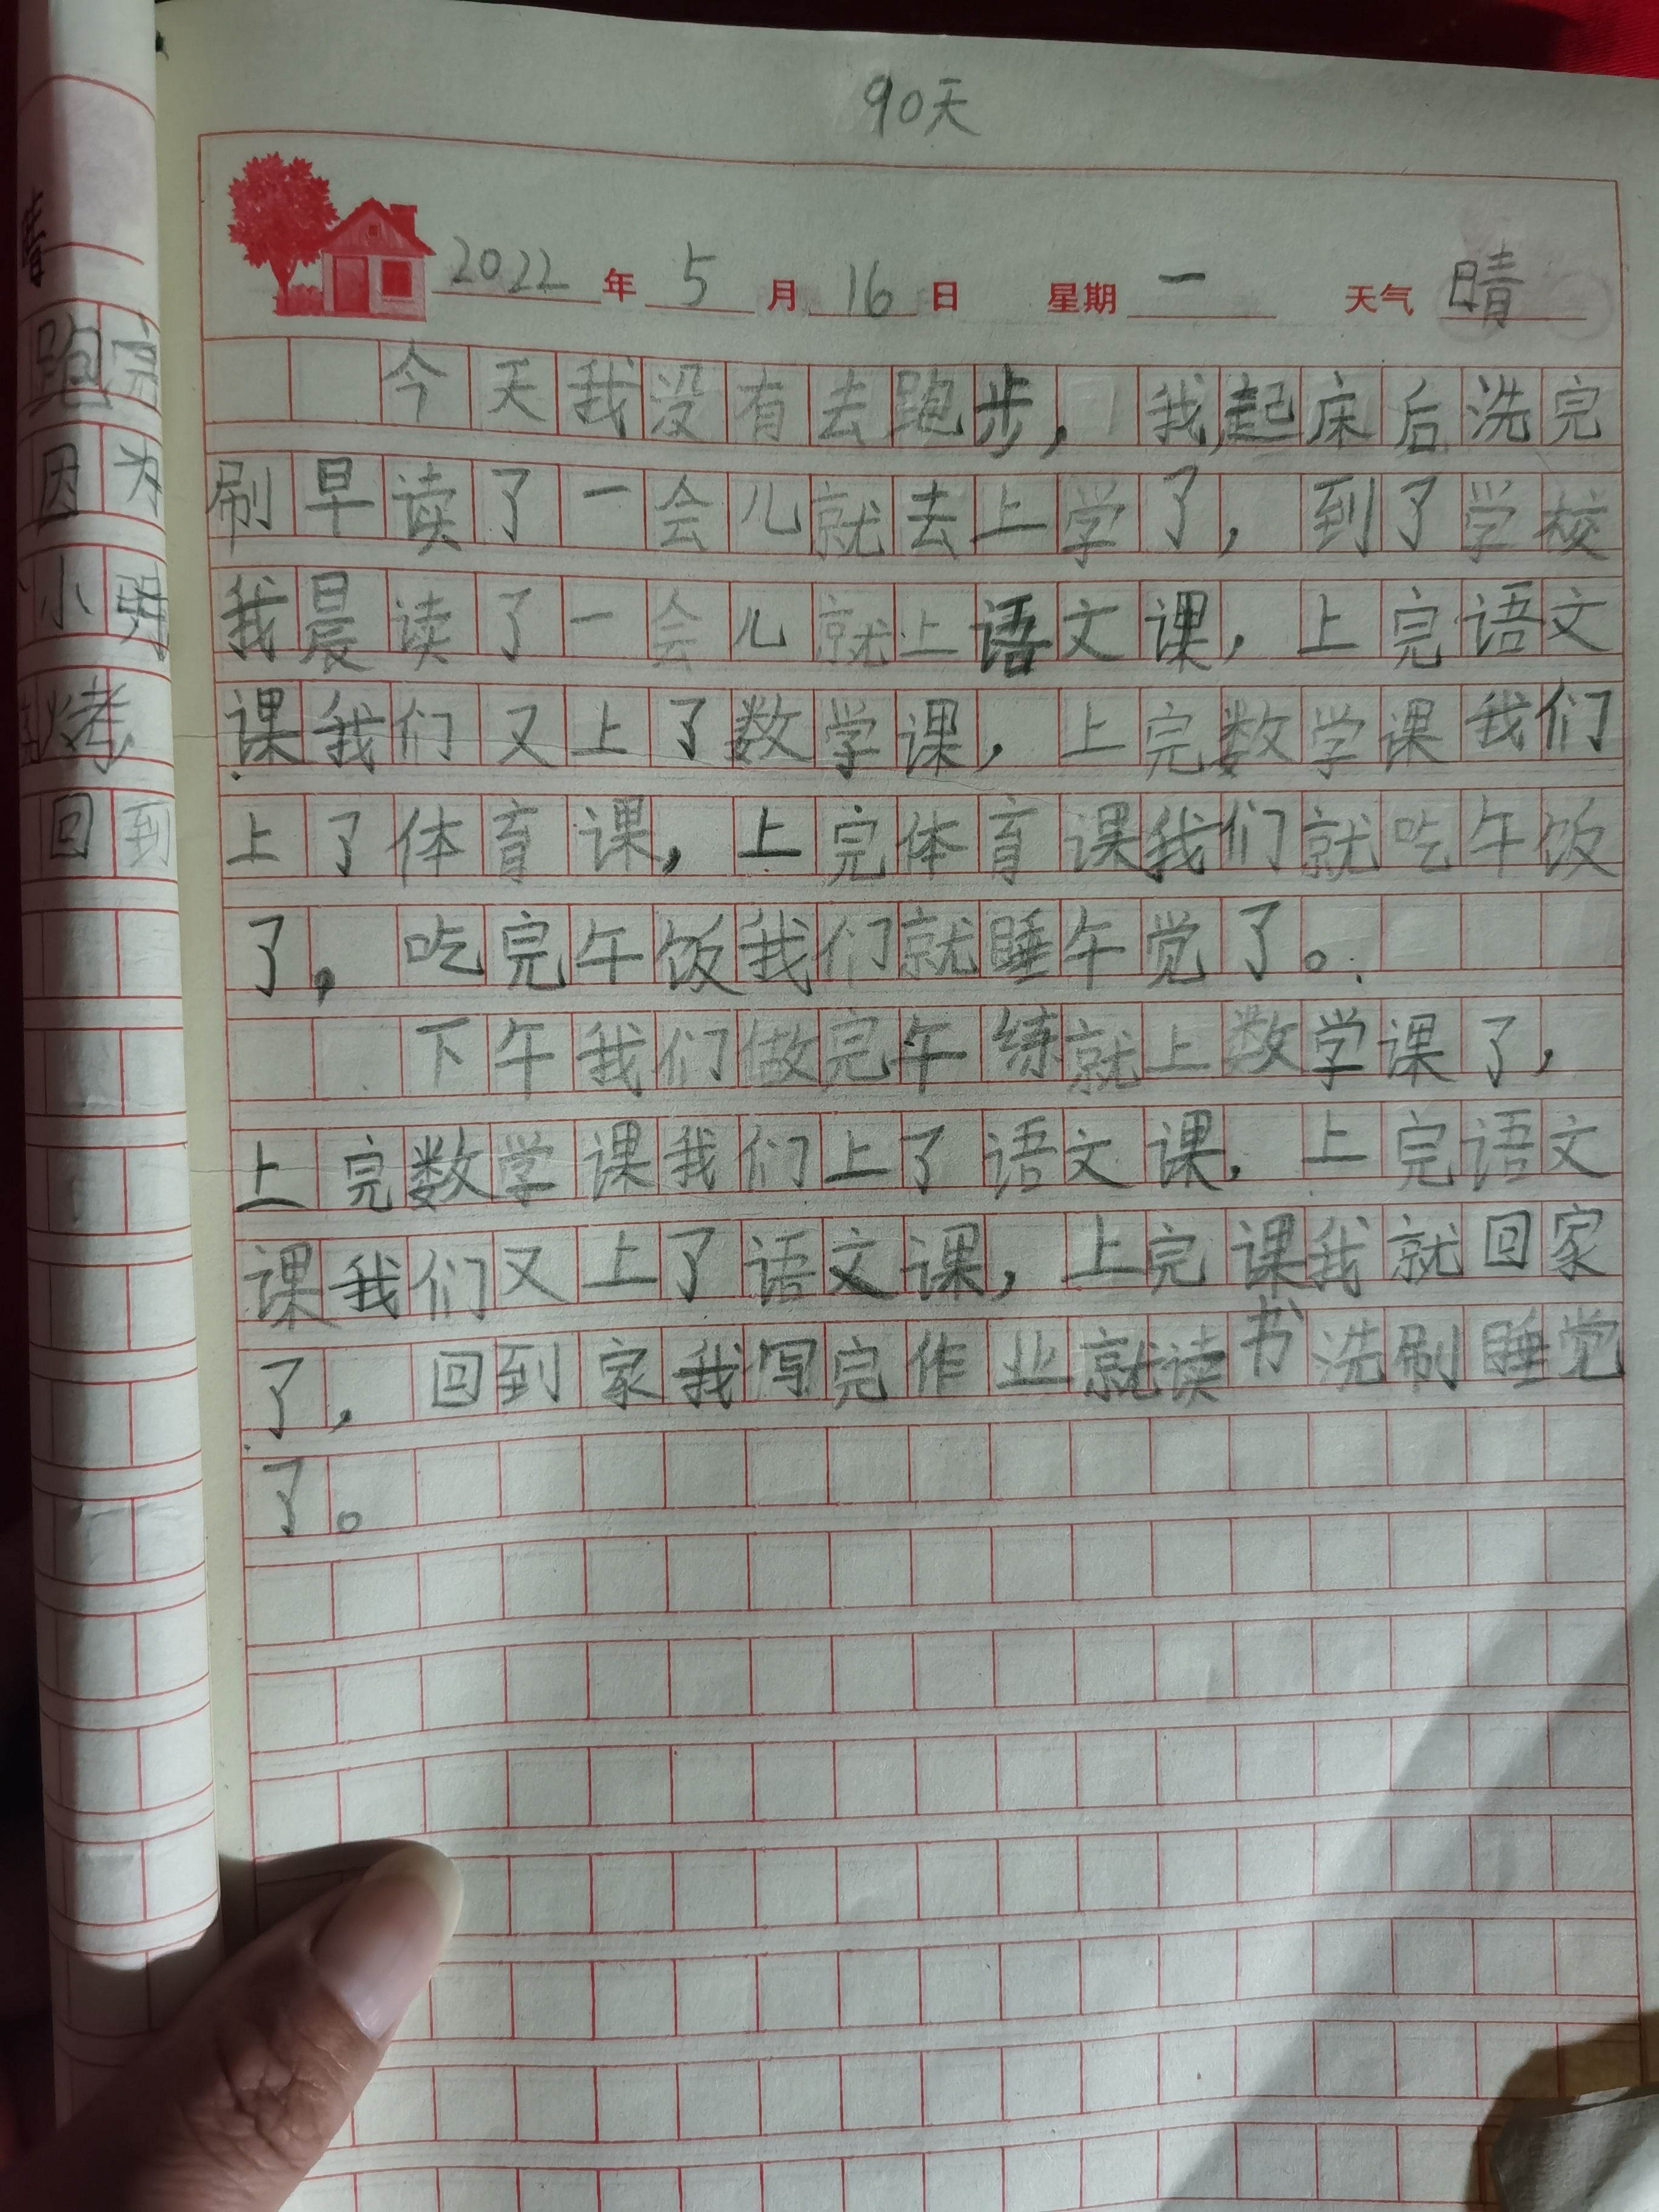 90天
2022年5月16日 星期一 天气晴
今天我没有去跑步,我起床后洗完
刷早读了一会儿就去上学了,到了学校
我晨读了一会儿就上语文课,上完语文
课我们又上了数学课,上完数学课我们
上了体育课,上完体育课我们就吃午饭
了,吃完午饭我们就睡午觉了。
下午我们做完午练就上数学课了,
上完数学课我们上了语文课,上完语文
课我们又上了语文课,上完课我就回家
了,回到家我写完作业就读书洗刷睡觉
了。
跑完
因为
小明
烤
回到